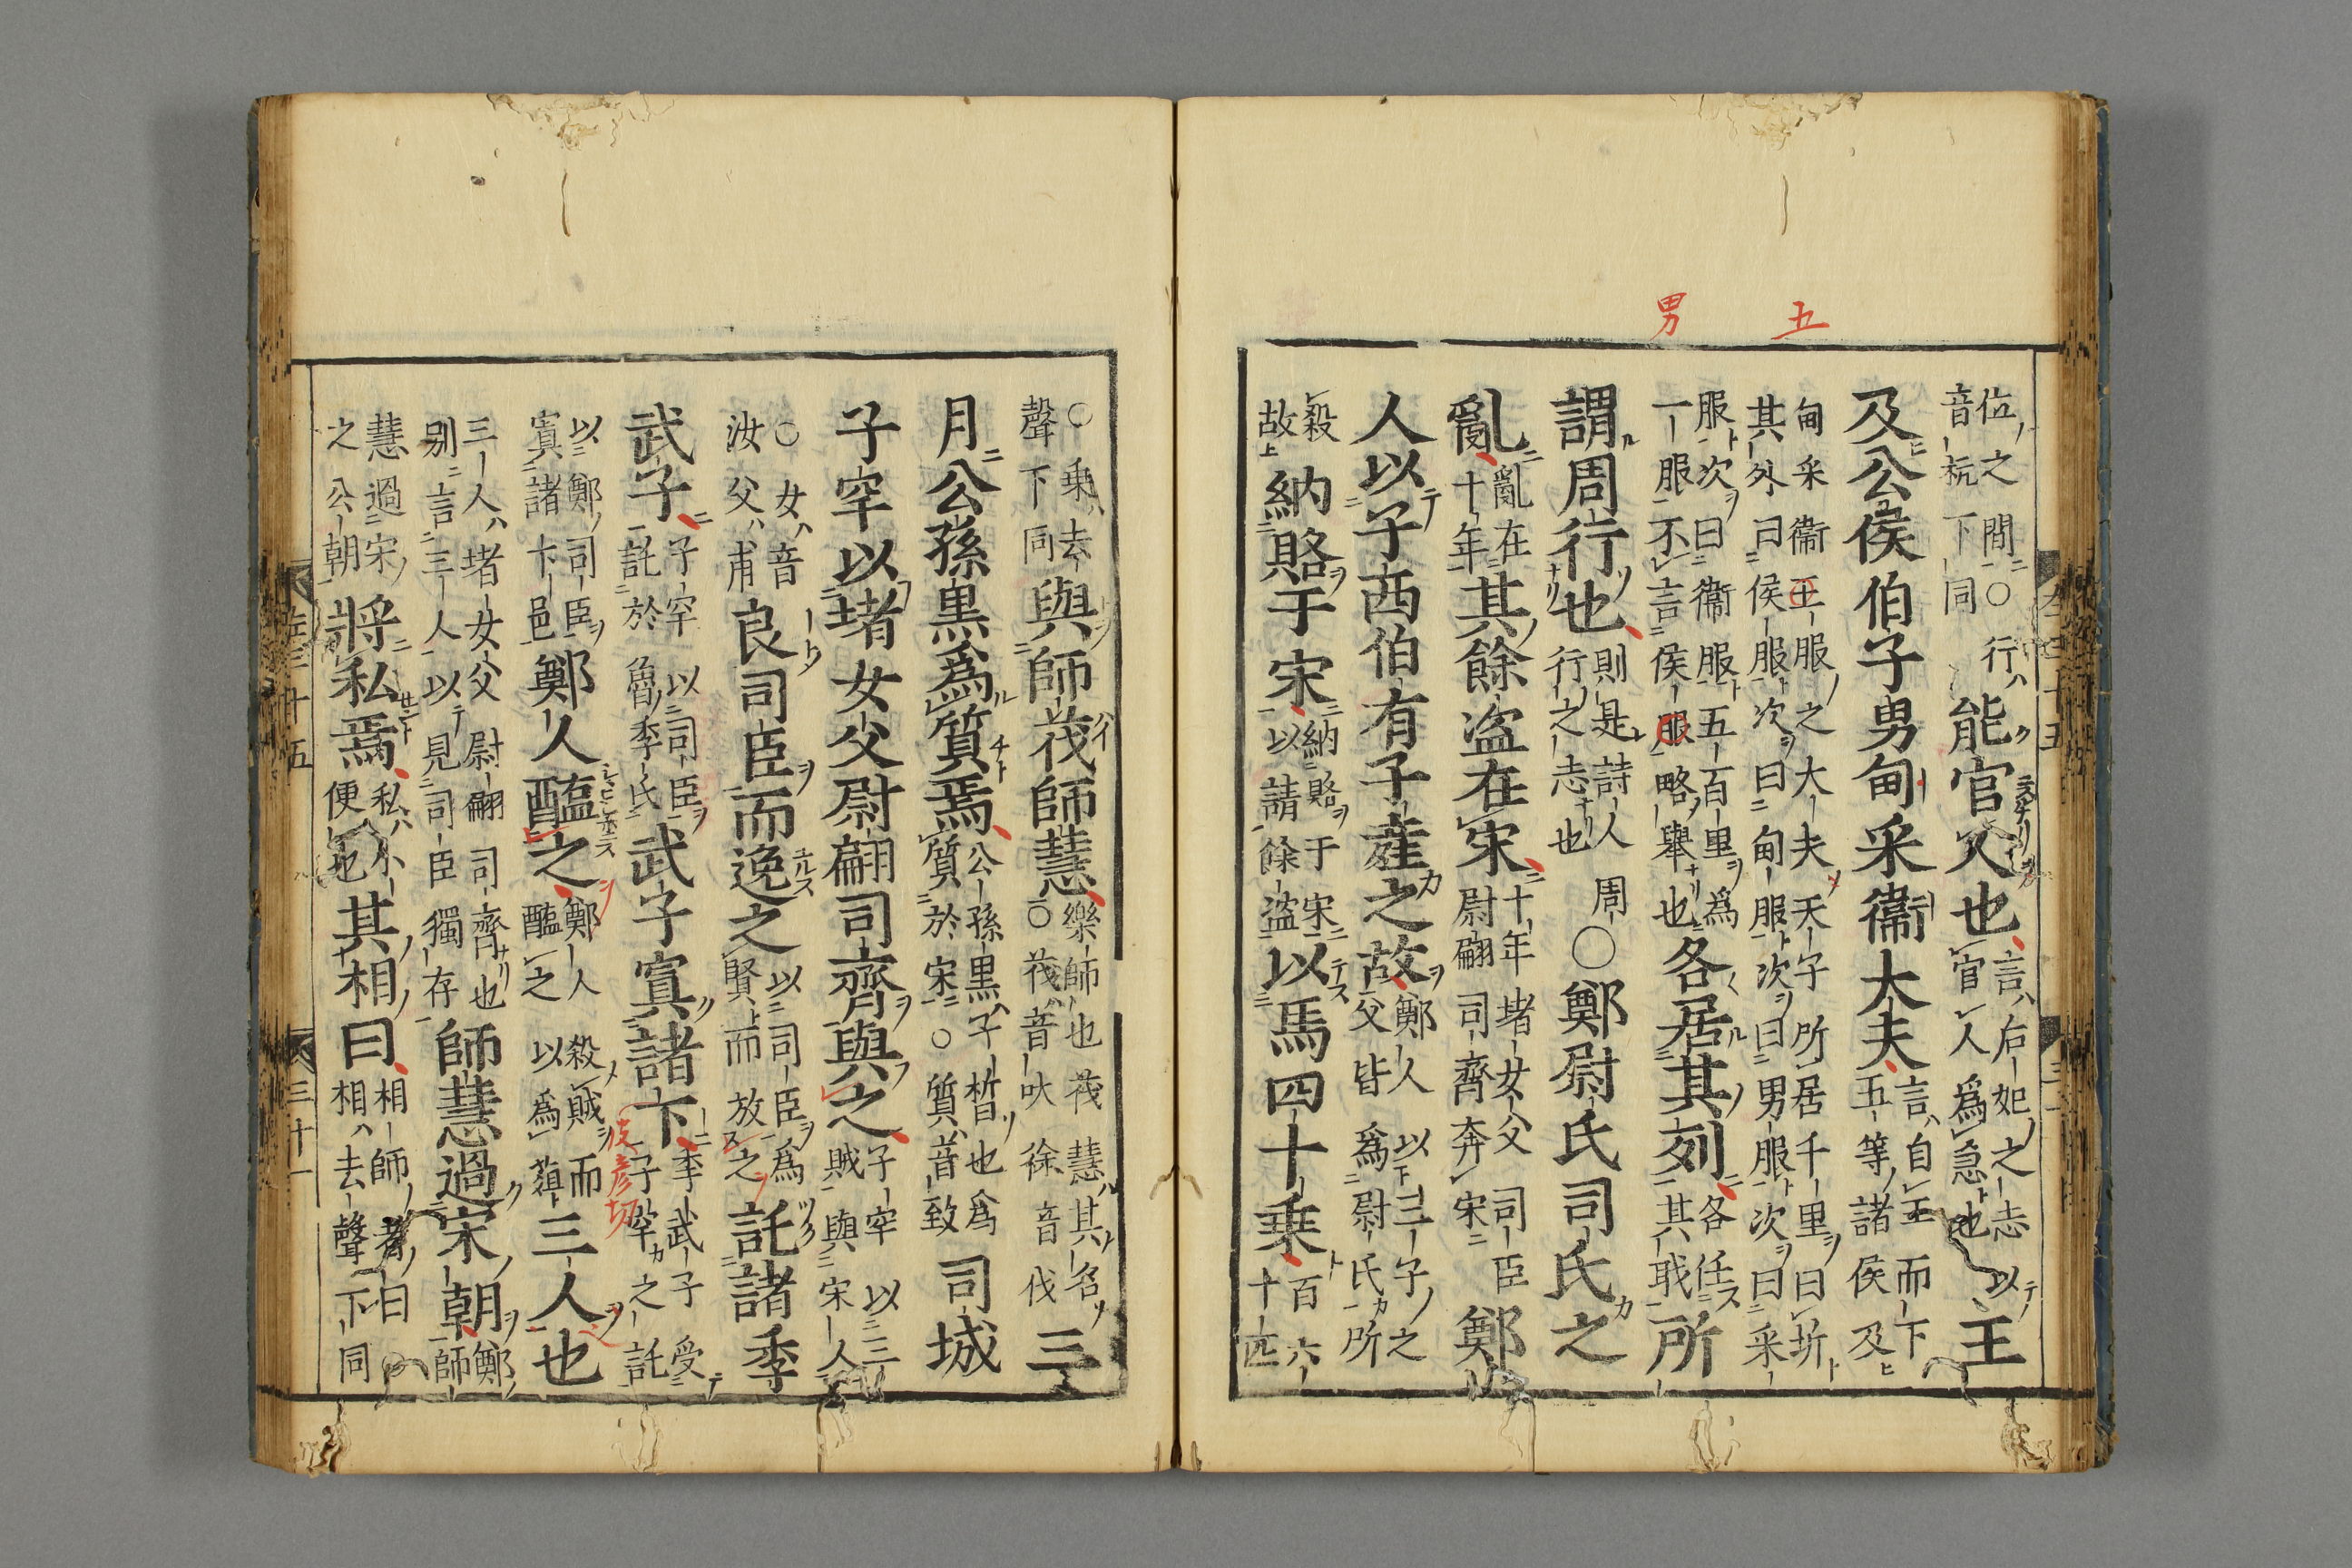 五
男
位之間○行音杭下同能官人也言后妃之志以官人爲急也王
及公侯伯子男甸采衞大夫言自王而下五等諸侯及
甸采衞王服之大夫天子所居千里曰圻其外曰侯服次曰甸服次曰男服次曰采
服次曰衞服五百里爲一服不言侯服略舉也各居其列各任其職所
謂周行也則是詩人周行之志也○鄭尉氏司氏之
亂亂在十年其餘盗在宋十年堵女父司臣尉翩司齊奔宋鄭
人以子西伯有子産之故鄭人以三子之父皆爲尉氏所
殺故納賂于宋納賂于宋以請餘盗以馬四十乗百六十匹
○乗去聲下同與師茷師慧樂師也茷慧其名○茷音吠徐音伐三
月公孫黒爲質焉公孫黒子晳也爲質於宋○質音致司城
子罕以堵女父尉翩司齊與之子罕以三賊與宋人
○女音汝父甫良司臣而逸之以司臣爲賢而放之託諸季
武子子罕以司臣託於魯季氏武子寘諸卞季武子受子罕之託
彼彦切
以鄭司臣寘諸卞邑鄭人醢之鄭人殺賊而醢之以爲葅三人也
三人堵女父尉翩司齊也別言三人以見司臣獨存師慧過宋朝鄭師
慧過宋之公朝將私焉私小便也其相曰相師者曰相去聲下同
左三十五 三十一